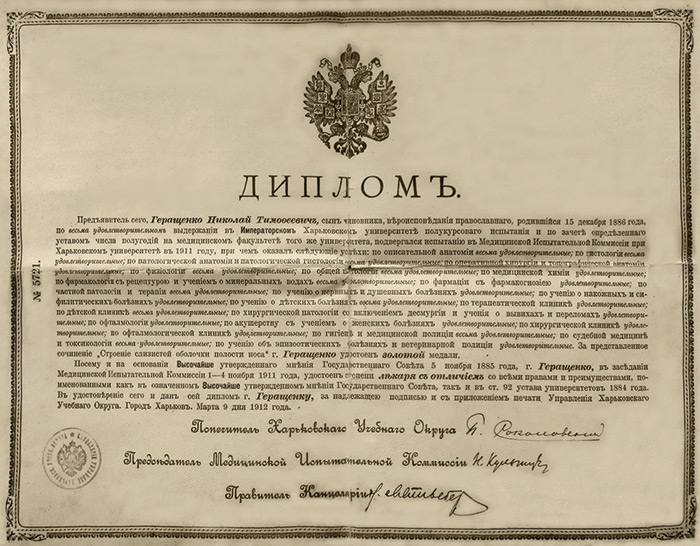 ДИПЛОМЪ.
Предъявитель сего, Геращенко Николай Тимоѳеевичъ, сынъ чиновника, вѣроисповѣданія православнаго, родившійся 15 декабря 1886 года,
по весьма удовлетворительном выдержаніи въ Императорскомъ Харьковскомъ университетѣ полукурсоваго испытанія и по зачетѣ опредѣленнаго
уставомъ числа полугодій на медицинскомъ факультетѣ того же университета, подвергался испытанію въ Медицинской Испытательной Коммиссіи при
Харьковскомъ университетѣ въ 1911 году, при чемъ оказалъ слѣдующіе успѣхи: по описательной анатоміи весьма удовлетворительные; по гистологіи весьма
удовлетворительные; по патологической анатоміи и патологической гистологіи весьма удовлетворительные; по оперативной хирургіи и топографической анатоміи
весьма удовлетворительные; по физіологіи весьма удовлетворительные; по общей патологіи весьма удовлетворительные; по медицинской химіи удовлетворительные;
по фармакологіи съ рецептурою и ученіемъ о минеральныхъ водахъ весьма удовлетворительные; по фармаціи съ фармакогнозіею удовлетворительные; по
частной патологіи и терапіи весьма удовлетворительные; по ученію о нервныхъ и душевныхъ болѣзняхъ удовлетворительные; по ученію о накожныхъ и си-
филитическихъ болѣзняхъ удовлетворительные; по ученію о дѣтскихъ болѣзняхъ удовлетворительные; по терапевтической клиникѣ удовлетворительные;
по дѣтской клиникѣ весьма удовлетворительные; по хирургической патологіи со включеніемъ десмургіи и ученія о вывихахъ и переломахъ удовлетвори-
тельные; по офталмологіи удовлетворительные; по акушерству съ ученіемъ о женскихъ болѣзняхъ удовлетворительные; по хирургической клиникѣ удовле-
творительные; по офталмологической клиникѣ удовлетворительные; по гигіенѣ и медицинской полиціи весьма удовлетворительные; по судебной медицинѣ
и токсикологіи весьма удовлетворительные; по ученію объ эпизоотическихъ болѣзняхъ и ветеринарной полиціи удовлетворительные. За представленное
сочиненіе „Строеніе слизистой оболочки полости носа“ г. Геращенко удостоенъ золотой медали.
Посему и на основаніи Высочайше утвержденнаго мнѣнія Государственнаго Совѣта 5 ноября 1885 года, г. Геращенко, въ засѣданіи
Медицинской Испытательной Коммиссіи 1—4 ноября 1911 года, удостоенъ степени лѣкаря съ отличіемъ со всѣми правами и преимуществами, по-
именованными какъ въ означенномъ Высочайше утвержденномъ мнѣніи Государственнаго Совѣта, такъ и въ ст. 92 устава университетовъ 1884 года.
Въ удостовѣреніе сего и данъ сей дипломъ г. Геращенку, за надлежащею подписью и съ приложеніемъ печати Управленія Харьковскаго
Учебнаго Округа. Городъ Харьковъ. Марта 9 дня 1912 года.
№ 5721.
Попечитель Харьковскаго Учебнаго Округа П. Соколовский
Предсѣдатель Медицинской Испытательной Коммиссіи
Правитель Канцеляріи